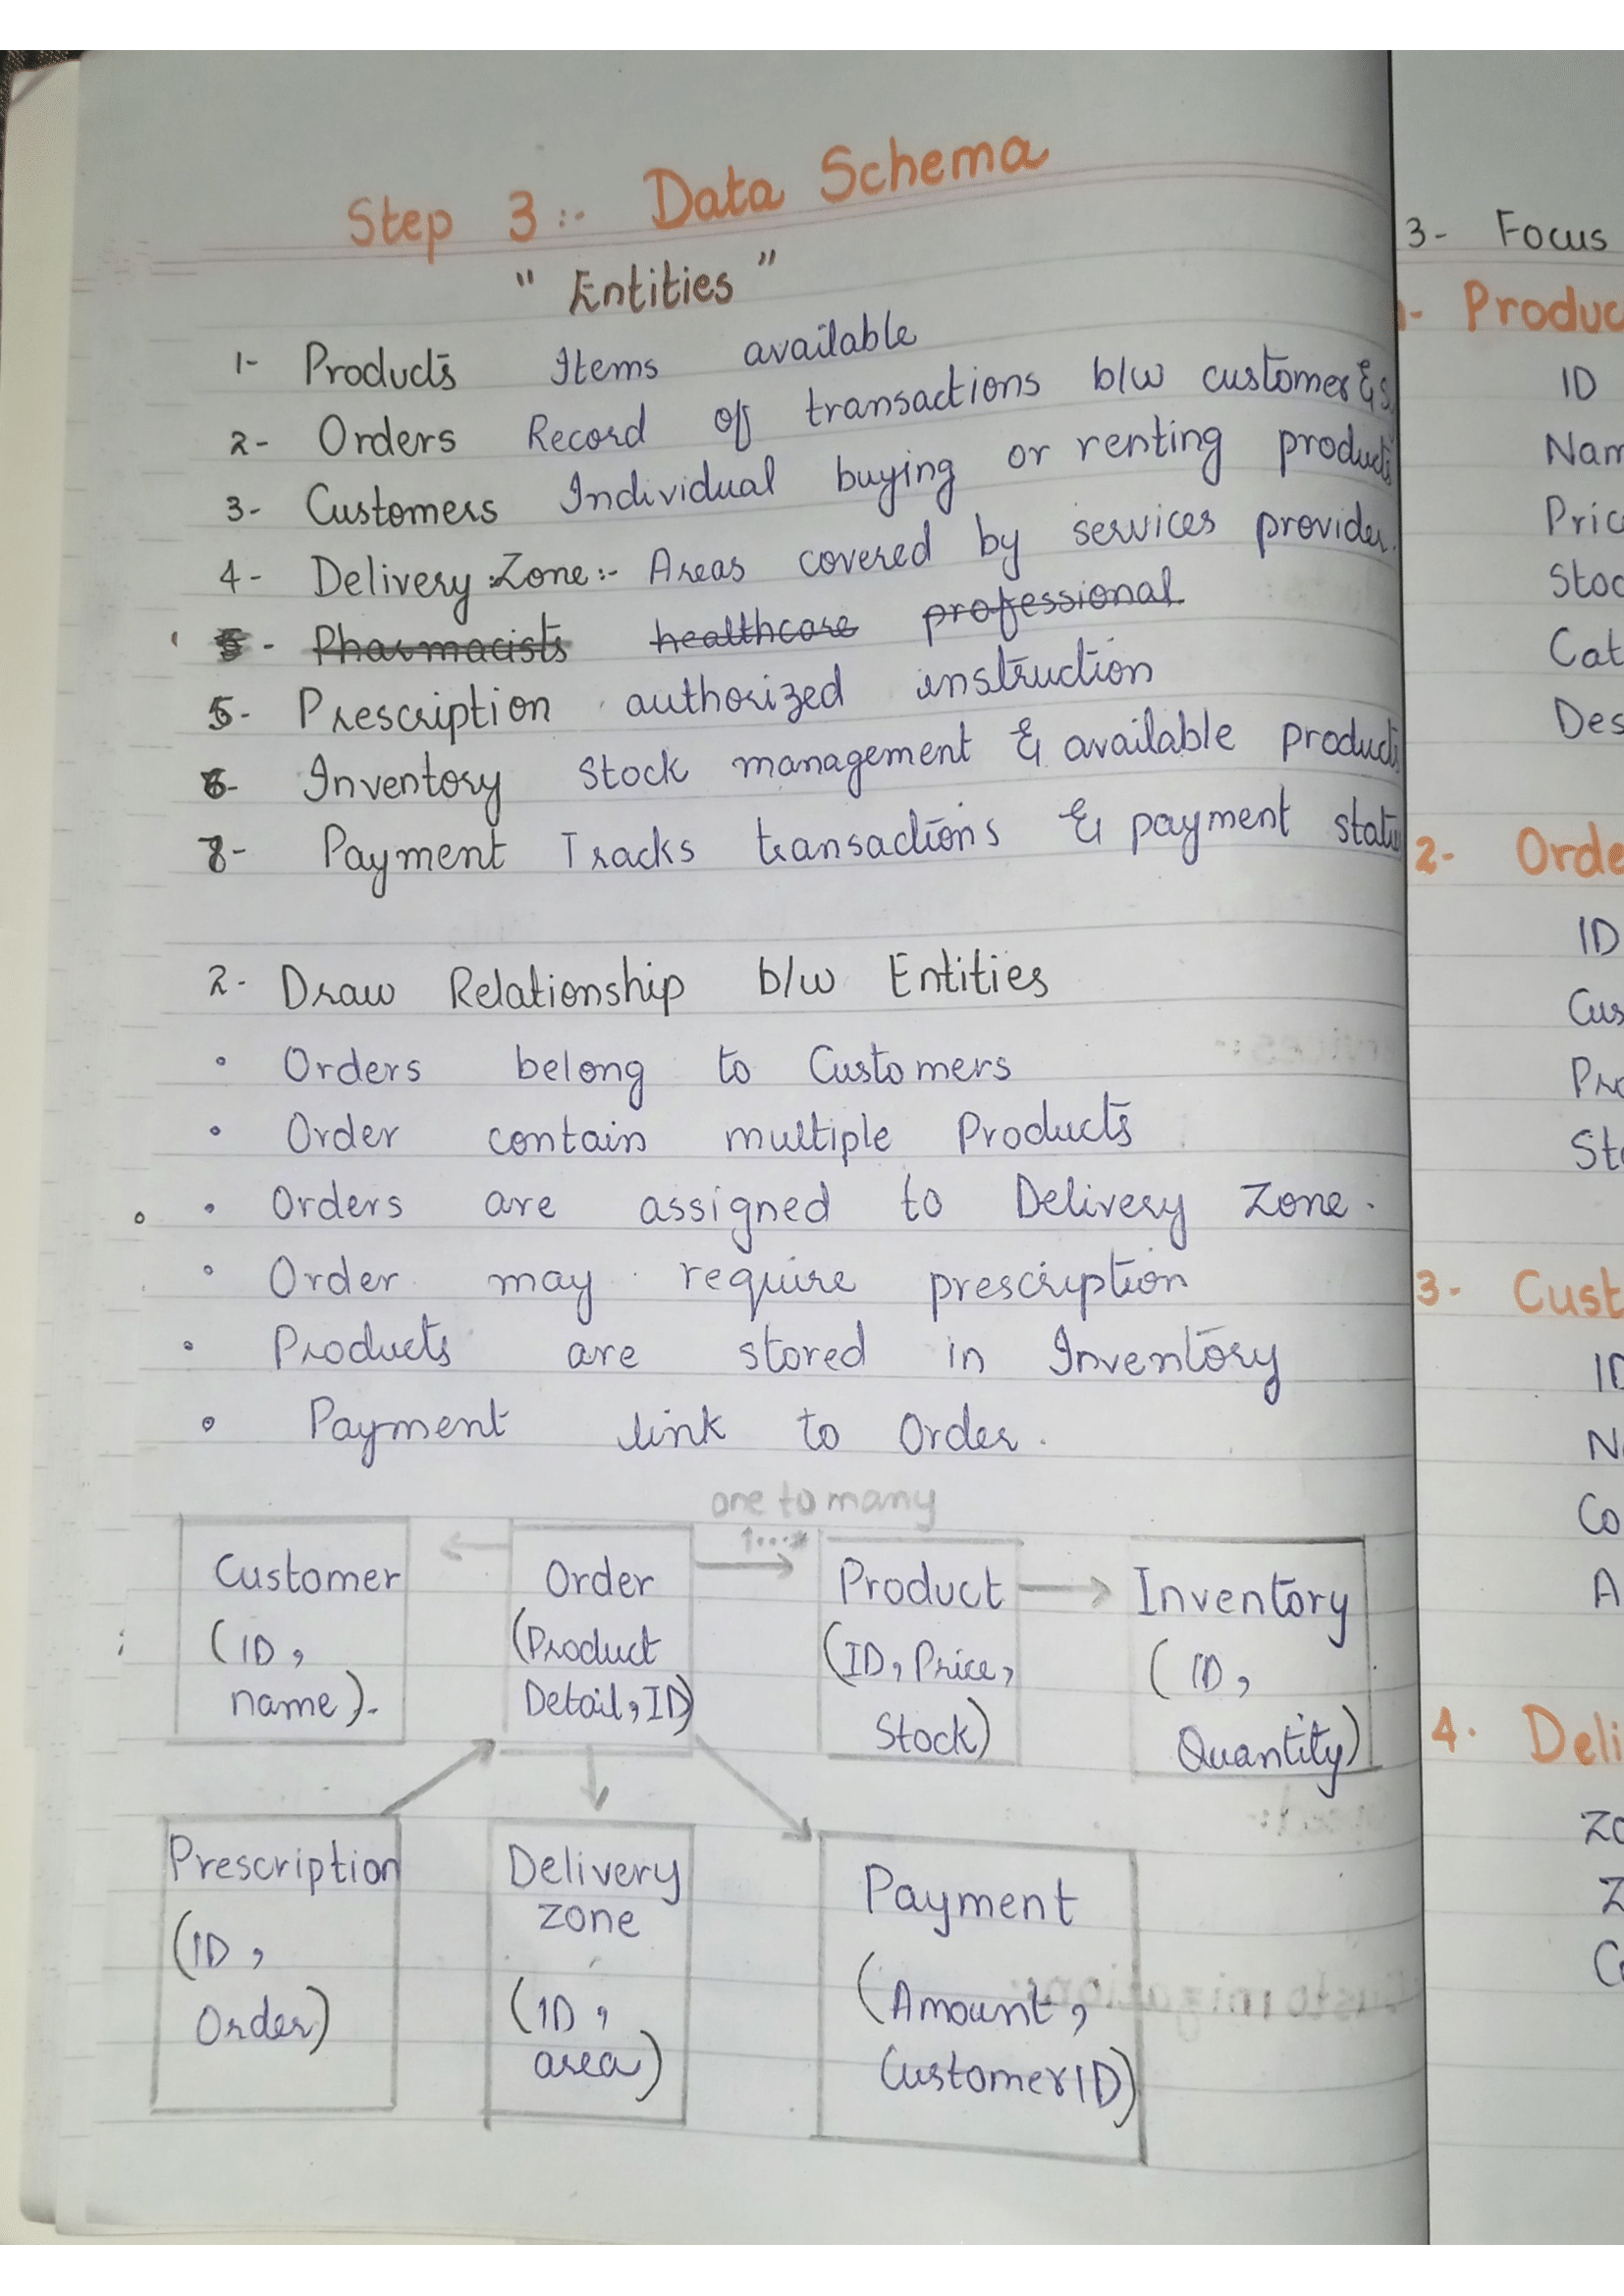 Step 3:- Data Schema
" Entities "
1- Products Items available
2- Orders Record of transactions b/w customer &
3- Customers Individual buying or renting products
4- Delivery :Zone:- Areas covered by services provider.
5- Pharmacists healthcare professional
5- Prescription authorized instruction
6- Inventory Stock management & available products
7- Payment Tracks transactions & payment status
2- Draw Relationship b/w Entities
• Orders belong to Customers
• Order contain multiple Products
• Orders are assigned to Delivery Zone.
• Order may require prescription
• Products are stored in Inventory
• Payment link to Order.
one to many
1...*
Customer
(ID,
name).
Order
(Product
Detail, ID)
Product
(ID, Price,
Stock)
Inventory
(ID,
Quantity)
Prescription
(ID,
Order)
Delivery
zone
(ID,
area)
Payment
(Amount,
CustomerID)
3- Focus
1- Produc
ID
Nam
Pric
Stoc
Cat
Des
2- Orde
ID
Cus
Pro
Sta
3- Cust
ID
Na
Co
A
4. Deli
Zo
Z
Co